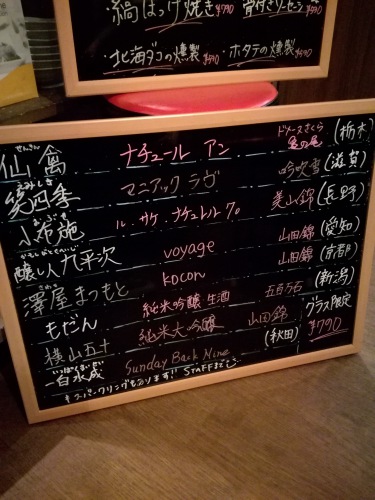 ・縞ほっけ焼き ¥790 ・骨付きソーセージ ¥790
・北海ダコの燻製 ¥590 ・ホタテの燻製 ¥590
せんきん
仙禽 ナチュール アン ドメーヌさくら 亀の尾 (栃木)
えみしき
笑四季 マニアック ラヴ 吟吹雪 (滋賀)
おぶせ
小布施 ル サケ ナチュレル 美山錦 (長野)
醸し人九平次 voyage 山田錦 (愛知)
さわや
澤屋まつもと kocon 山田錦 (京都)
もだん 純米吟醸 生酒 五百万石 (新潟)
横山五十 純米大吟醸 山田錦 グラス限定 ¥790
いっぱくすいせい
一白水成 Sunday Back Nine (秋田)
スパークリングもあります! STAFFまで